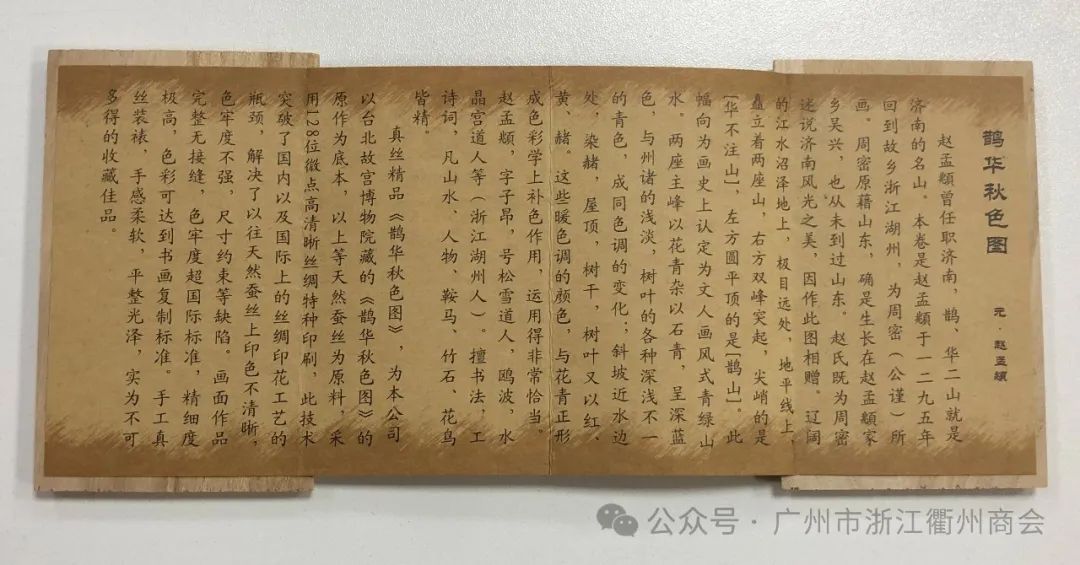 鹊华秋色图
元·赵孟頫
赵孟頫曾任职济南，鹊、华二山就是
济南的名山。本卷是赵孟頫于一二九五年
回到故乡浙江湖州，为周密（公谨）所
画。周密原藉山东，确是生长在赵孟頫家
乡吴兴，也从未到过山东。赵氏既为周密
迷说济南风光之美，因作此图相赠。辽阔
的江水沼泽地上，极目远处，地平线上，
矗立着两座山，右方双峰突起，尖峭的是
[华不注山]，左方圆平顶的是[鹊山]。此
幅向为画史上认定为文人画风式青绿山
水。两座主峰以花青杂以石青，呈深蓝
色，与州诸的浅淡，树叶的各种深浅不一
的青色，成同色调的变化；斜坡近水边
处，染赭，屋顶，树干，树叶又以红、
黄、赭。这些暖色调的颜色，与花青正形
成色彩学上补色作用，运用得非常恰当。
赵孟頫，字子昂，号松雪道人，鸥波，水
晶宫道人等（浙江湖州人）。擅书法，工
诗词，凡山水、人物、鞍马、竹石、花鸟
皆精。
真丝精品《鹊华秋色图》，为本公司
以台北故宫博物院藏的《鹊华秋色图》的
原作为底本，以上等天然蚕丝为原料，采
用128位微点高清晰丝绸特种印刷，此技术
突破了国内以及国际上的丝绸印花工艺的
瓶颈，解决了以往天然蚕丝上印色不清晰，
色牢度不强，尺寸约束等缺陷。画面作品
完整无接缝，色牢度超国际标准，精细度
极高，色彩可达到书画复制标准。手工真
丝装裱，手感柔软，平整光泽，实为不可
多得的收藏佳品。
公众号·广州市浙江衢州商会